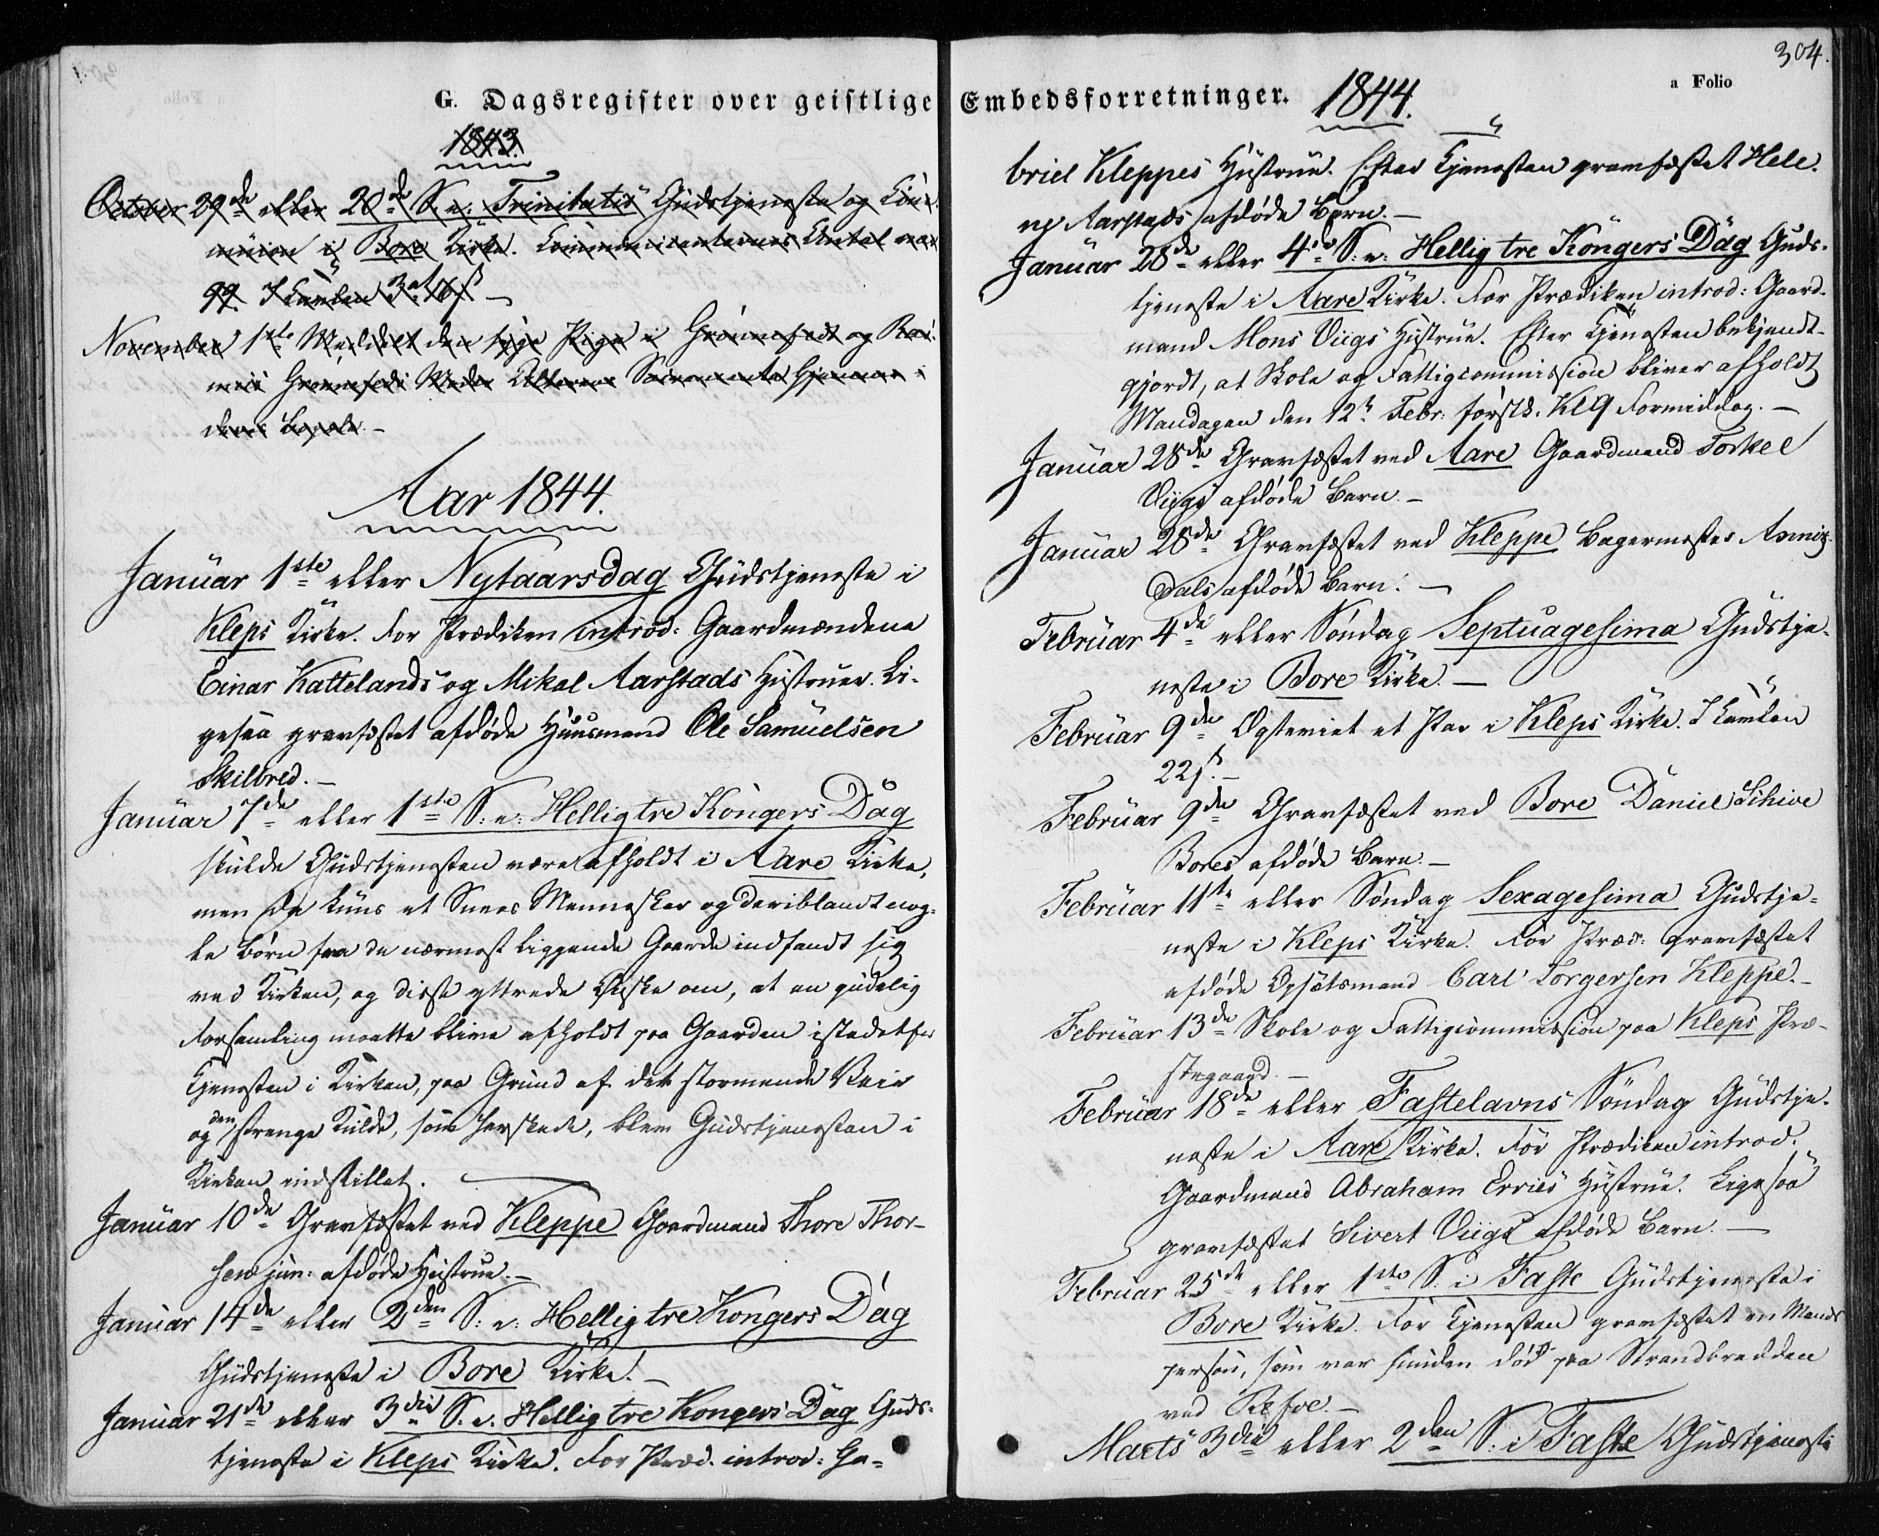 G. Dagsregister over geistlige
1843.
October 29de eller 20de S. e. Trinitatis Gudstjeneste og Com-
munion i Bore Kirke. Communicanternes Antal var
99. I Tavlen
November 1ste Meddelt den syge Pige i
Sacramente hjemme i
deres
Aar 1844.
Januar 1ste eller Nytaarsdag Gudstjeneste i
Kleps Kirke. For Prædiken introd: Gaardmændene
Einar Kattelands og Mikal Aarstads Hustruer. Li-
gesaa gravfæstet afdøde Huusmand Ole Samuelsen
Skilbred. —
Januar 7de eller 1ste S: e: Hellig tre Kongers Dag
skulde Gudstjenesten være afholdt i Aare Kirke,
men da kuns et Snees Mennesker og deriblandt nog-
le Børn fra de nærmest liggende Gaarde indfandt sig
ved Kirken, og disse yttrede Ønske om, at en gudelig
Forsamling maatte blive afholdt paa Gaarden istedetfor
Tjenesten i Kirken, paa Grund af det stormende Veir
og den strenge Kulde, som herskede, blev Gudstjenesten i
Kirken indstillet.
Januar 10de Gravfæstet ved Kleppe Gaardmand Thore Thor-
sen jun: afdøde Hustrue. —
Januar 14de eller 2den S: e: Hellig tre Kongers Dag
Gudstjeneste i Bore Kirke. —
Januar 21de eller 3die S. e. Hellig tre Kongers Dag Guds-
tjeneste i Kleps Kirke. For Præd. introd: Ga-
304.
Embedsforretninger. 1844.
a Folio
briel Kleppes Hustrue. Efter Tjenesten gravfæstet Hel-
ne Aarstads afdøde Barn. —
Januar 28de eller 4de S: e: Hellig tre Kongers Dag Guds-
tjeneste i Aare Kirke. For Prædiken introd: Gaard-
mand Mons Viigs Hustrue. Efter Tjenesten bekjendt-
gjordt, at Skole og Fattigcommission bliver afholdt
Mandagen den 12te Febr: førstk. Kl 9 Formiddag. —
Januar 28de Gravfæstet ved Aare Gaardmand Torkel
Viigs afdøde Barn. —
Januar 28de Gravfæstet ved Kleppe Bagermester
dals afdøde Barn. —
Februar 4de eller Søndag Septuagesima Gudstje-
neste i Bore Kirke. —
Februar 9de Egteviet et Par i Kleps Kirke. I Tavlen
22 s. —
Februar 9de Gravfæstet ved Bore Daniel Schive
Bores afdøde Barn. —
Februar 11te eller Søndag Sexagesima Gudstje-
neste i Kleps Kirke. For Præd: gravfæstet
afdøde Opsatsmand Carl Torgersen Kleppe. —
Februar 13de Skole og Fattigcommission paa Kleps Præ-
stegaard. —
Februar 18de eller Fastelavns Søndag Gudstje-
neste i Aare Kirke. For Prædiken introd.
Gaardmand Abraham Erries Hustrue. Ligesaa
gravfæstet Sivert Viigs afdøde Barn. —
Februar 25de eller 1ste S. i Faste Gudstjeneste i
Bore Kirke. For Tjenesten gravfæstet en Mands
person, som var funden død paa Strandbredden
ved Refve. —
Marts 3die eller 2den S. i Faste Gudstjeneste